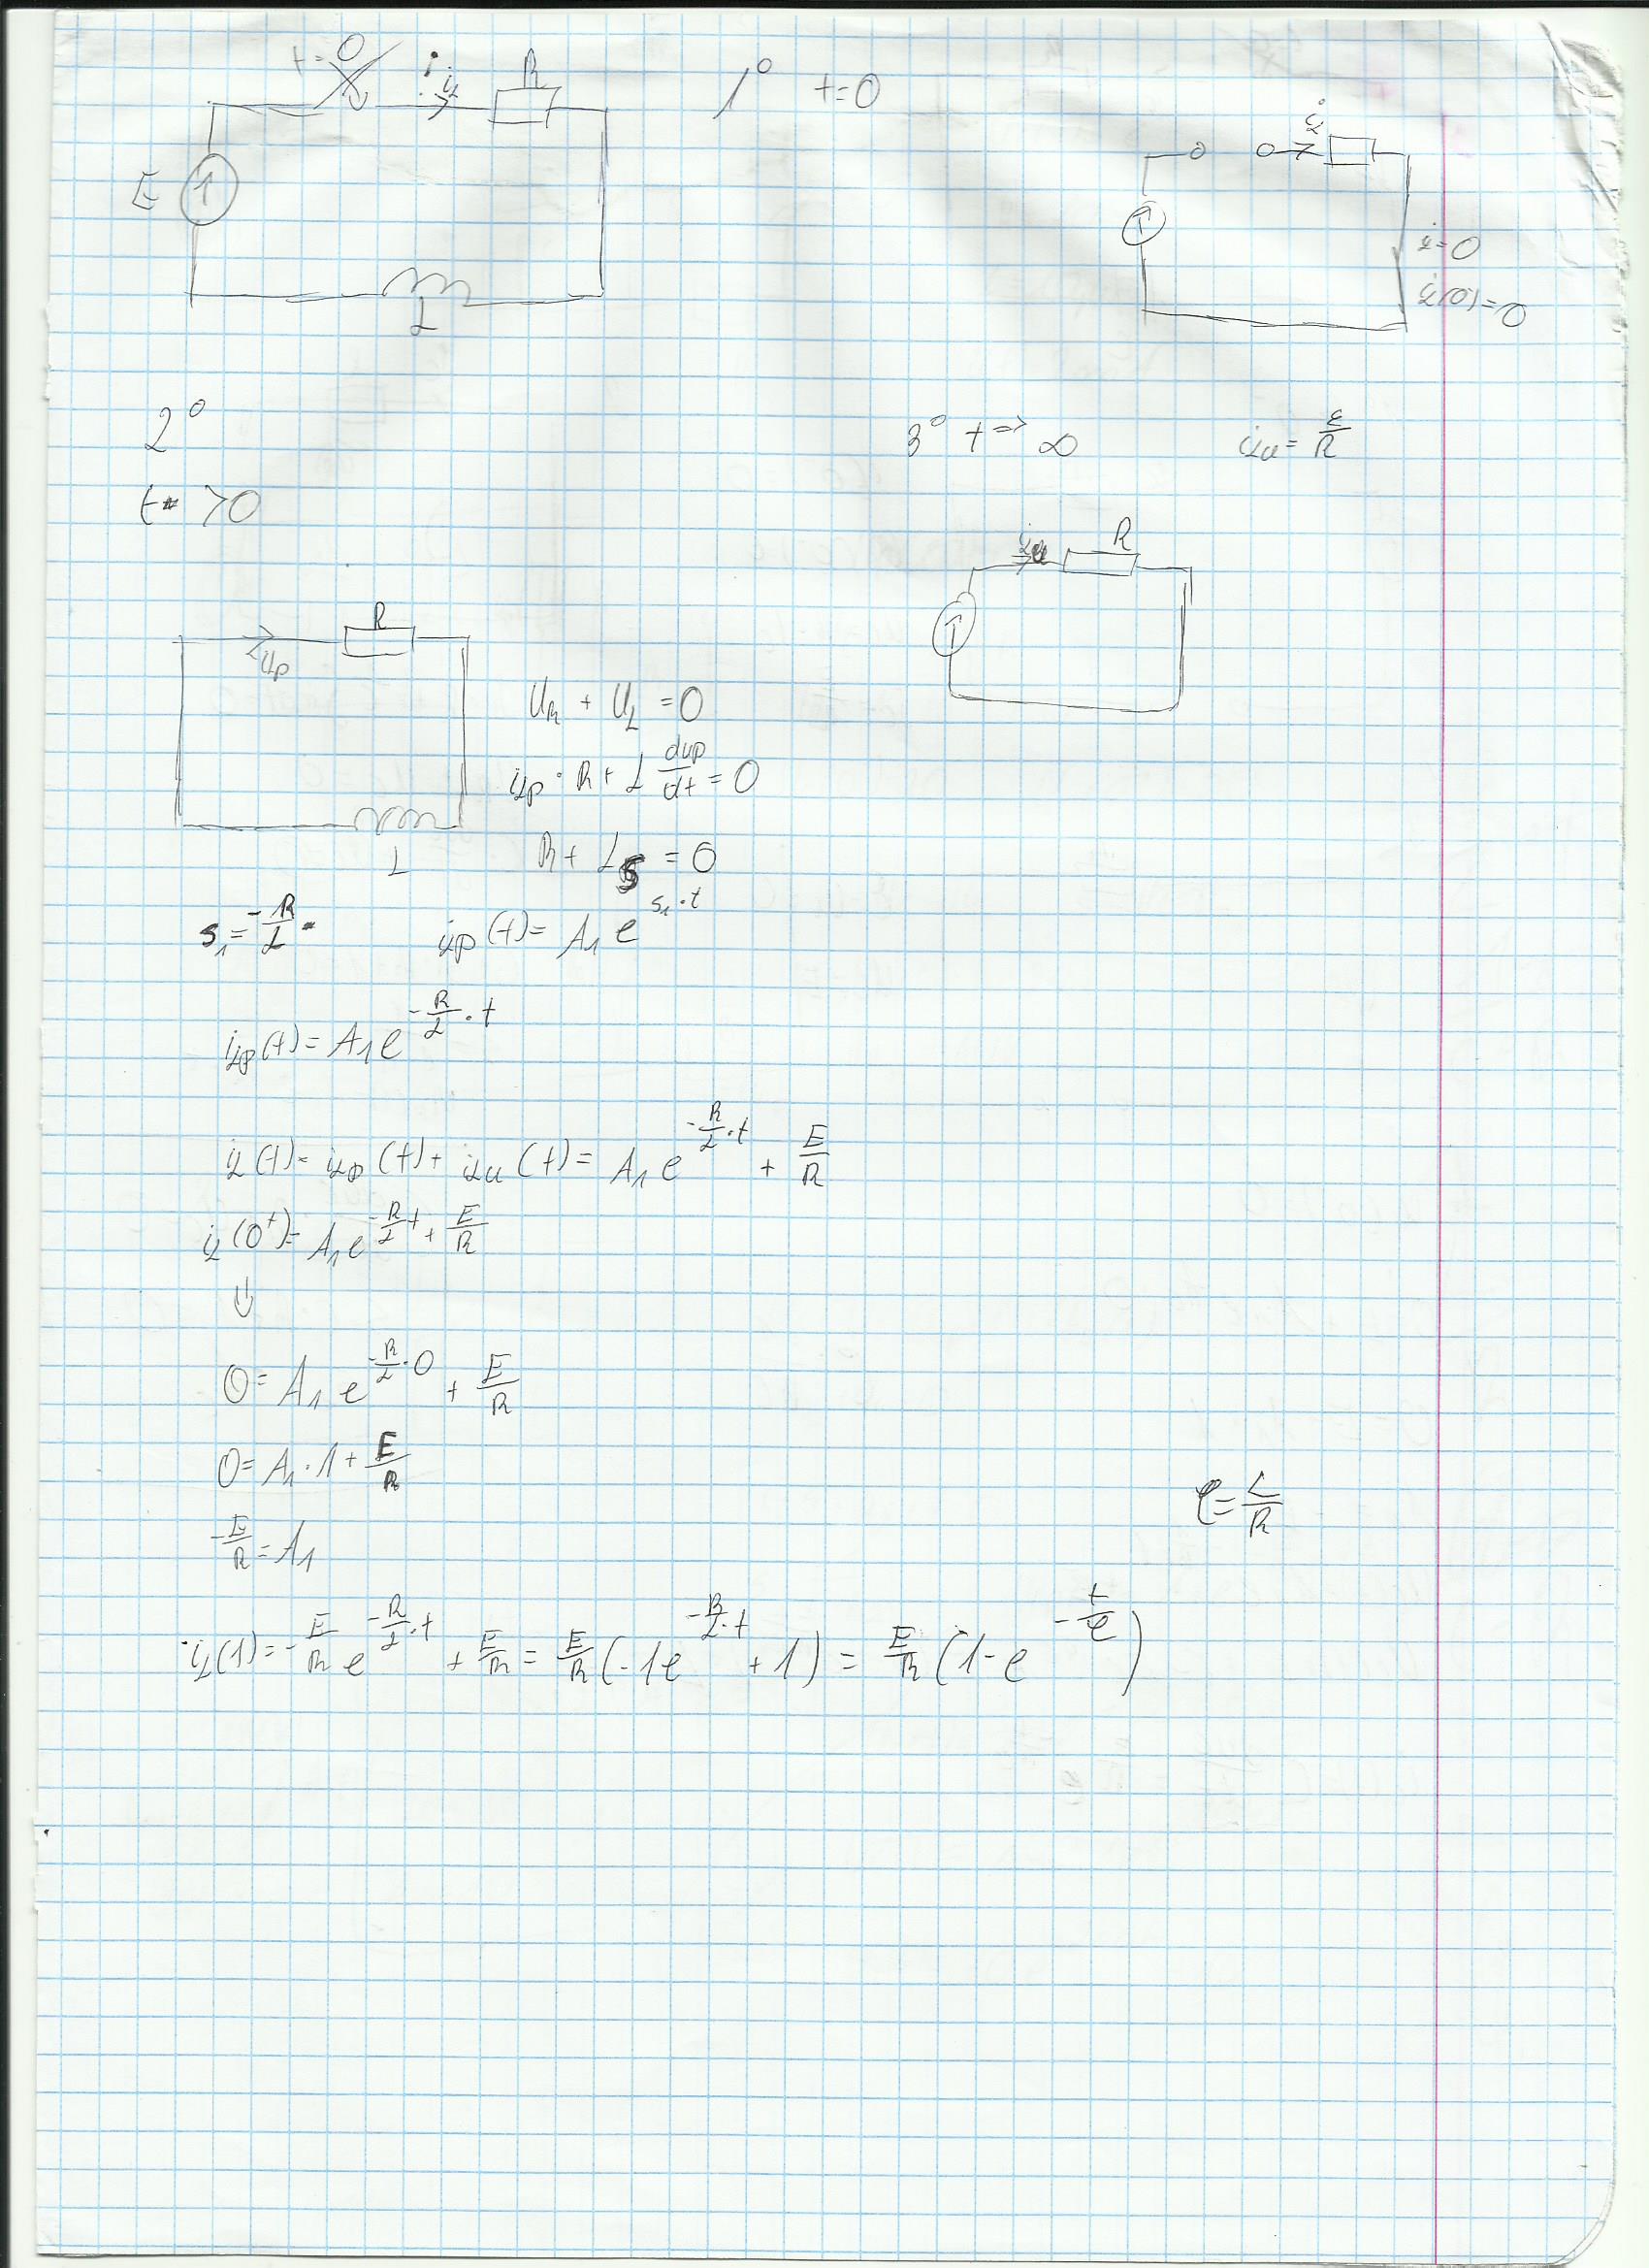 t=0
i_L
R
E
L
1° t=0
i_L
i_L=0
i_L(0⁻)=0
2°
t >0
3° t ⇒ ∞
i_Lu = E/R
i_Lu
R
R
i_Lp
L
U_R + U_L = 0
i_Lp · R + L di_Lp/dt = 0
R + Ls = 0
s₁ = -R/L
i_Lp(t) = A₁ e^(s₁·t)
i_Lp(t) = A₁ e^(-R/L · t)
i_L(t) = i_Lp(t) + i_Lu(t) = A₁ e^(-R/L · t) + E/R
i_L(0⁺) = A₁ e^(-R/L t) + E/R
⇓
0 = A₁ e^(-R/L · 0) + E/R
0 = A₁ · 1 + E/R
-E/R = A₁
τ = L/R
i_L(1) = -E/R e^(-R/L · t) + E/R = E/R (-1e^(-R/L · t) + 1) = E/R (1 - e^(-t/τ))